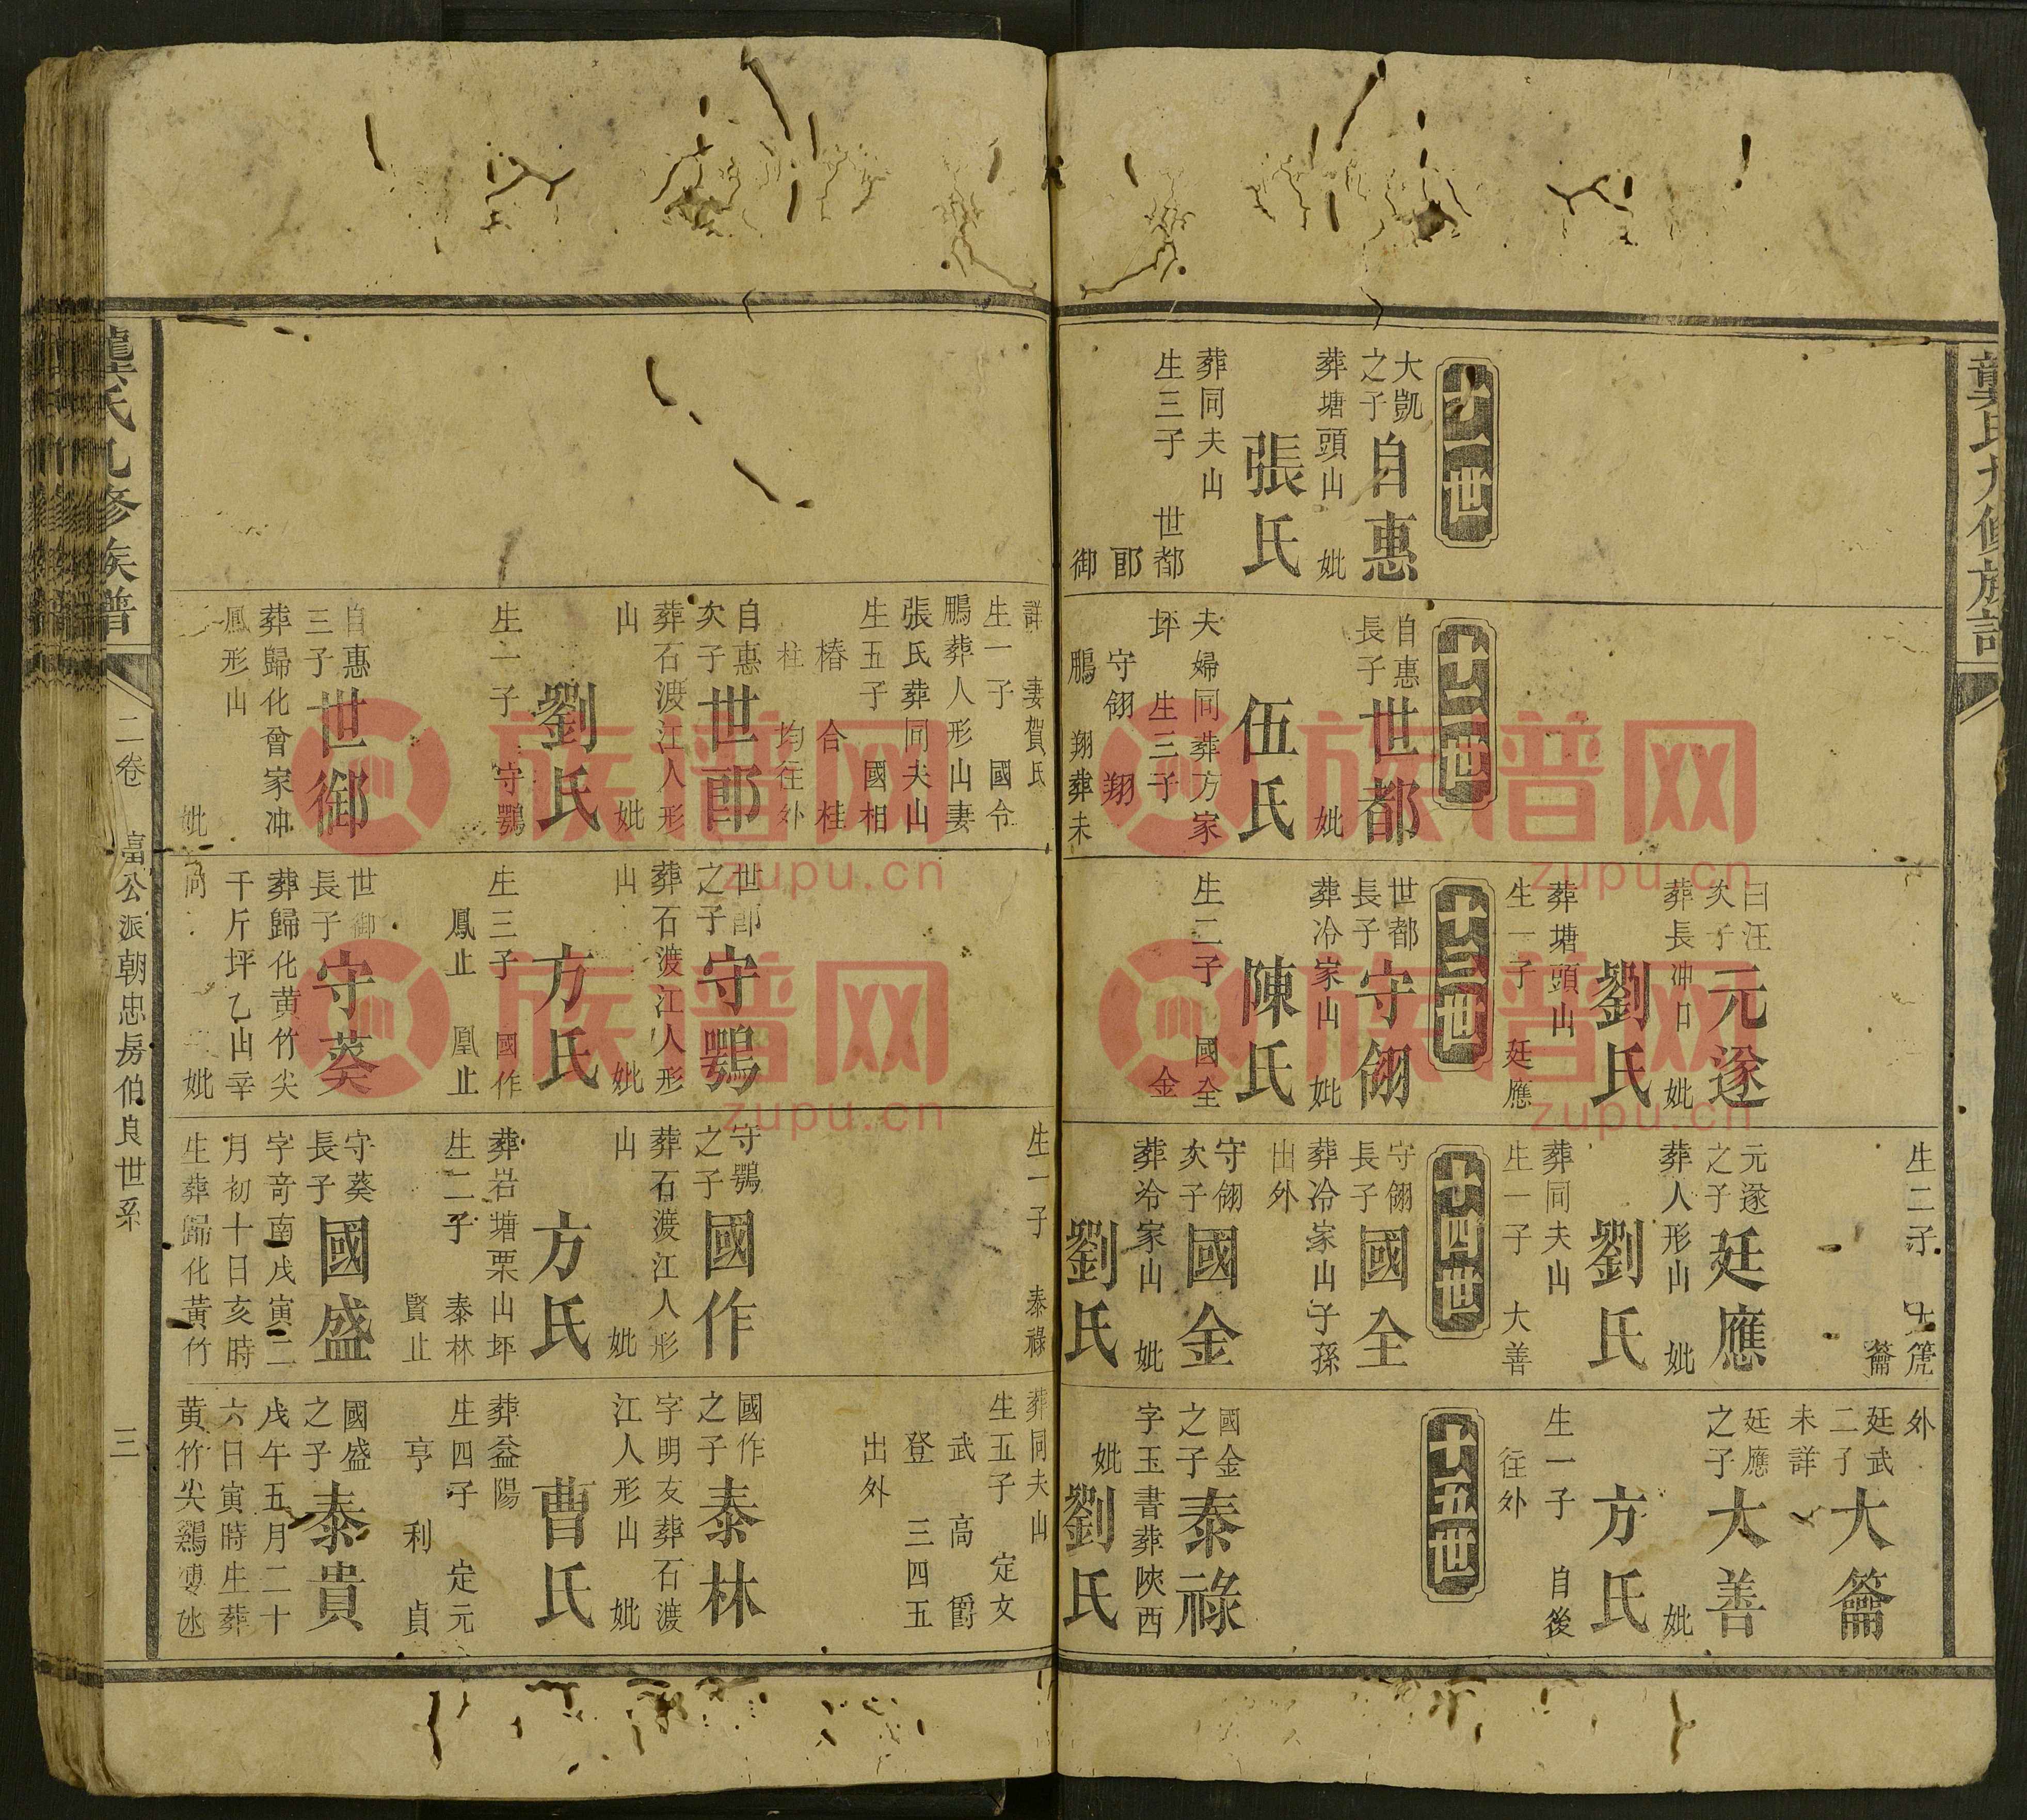 龔氏九修族譜
十一世
大凱
之子
自惠
葬塘頭山 妣
張氏
葬同夫山
生三子 世都
郎
御
十二世
自惠
長子
世都
妣
伍氏
夫婦同葬方家
坪 生三子
守翎 翔
鵬 翔葬未
曰汪
次子
元遂
葬長冲口 妣
劉氏
葬塘頭山
生一子 廷應
十三世
世都
長子
守翎
葬冷家山 妣
陳氏
生二子 國全
金
生二子
籥
元遂
之子
廷應
葬人形山 妣
劉氏
葬同夫山
生一子 大善
十四世
守翎
長子
國全
葬冷家山子孫
出外
守翎
次子
國金
葬冷家山 妣
劉氏
外
廷武
二子
大籥
未詳
廷應
之子
大善
妣
方氏
生一子 自後
往外
十五世
國金
之子
泰祿
字玉書葬陝西
妣
劉氏
詳 妻賀氏
生一子 國令
鵬葬人形山妻
張氏葬同夫山
生五子 國相
椿 合 桂
柱 均往外
自惠
次子
世郎
葬石渡江人形
山 妣
劉氏
生一子 守鶚
自惠
三子
世御
葬歸化曾家冲
鳳形山
妣
世郎
之子
守鶚
葬石渡江人形
山 妣
方氏
生三子 國作
鳳止 凰止
世御
長子
守葵
葬歸化黃竹尖
千斤坪乙山辛
向 妣
生一子 泰祿
守鶚
之子
國作
葬石渡江人形
山 妣
方氏
葬岩塘栗山坪
生二子 泰林
賢止
守葵
長子
國盛
字奇南戊寅二
月初十日亥時
生葬歸化黃竹
葬同夫山
生五子 定文
武 高 爵
登 三四五
出外
國作
之子
泰林
字明友葬石渡
江人形山 妣
曹氏
葬益陽
生四子 定元
亨 利 貞
國盛
之子
泰貴
戊午五月二十
六日寅時生葬
黃竹尖鷄
龔氏九修族譜
二卷
富公派朝忠房伯良世系
三
族谱网
zupu.cn
族谱网
zupu.cn
族谱网
zupu.cn
族谱网
zupu.cn